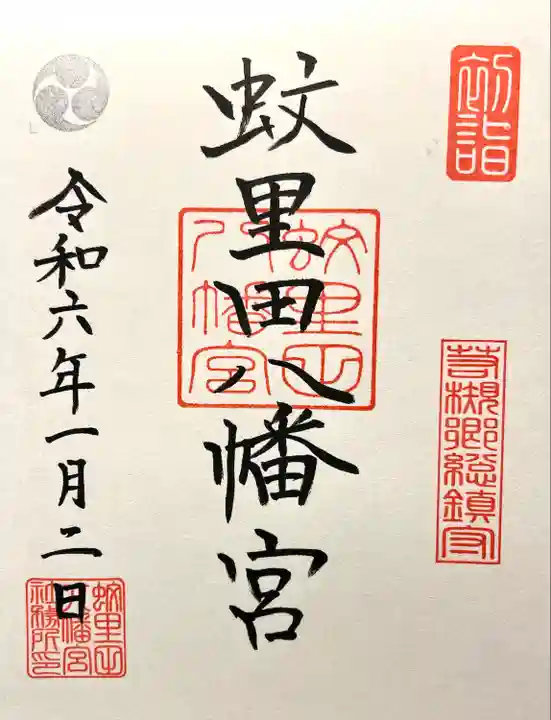 初詣
苛槻郷総鎮守
蚊里田八幡宮
蚊里田八幡宮
令和六年一月二日
蚊里田八幡宮社務所印